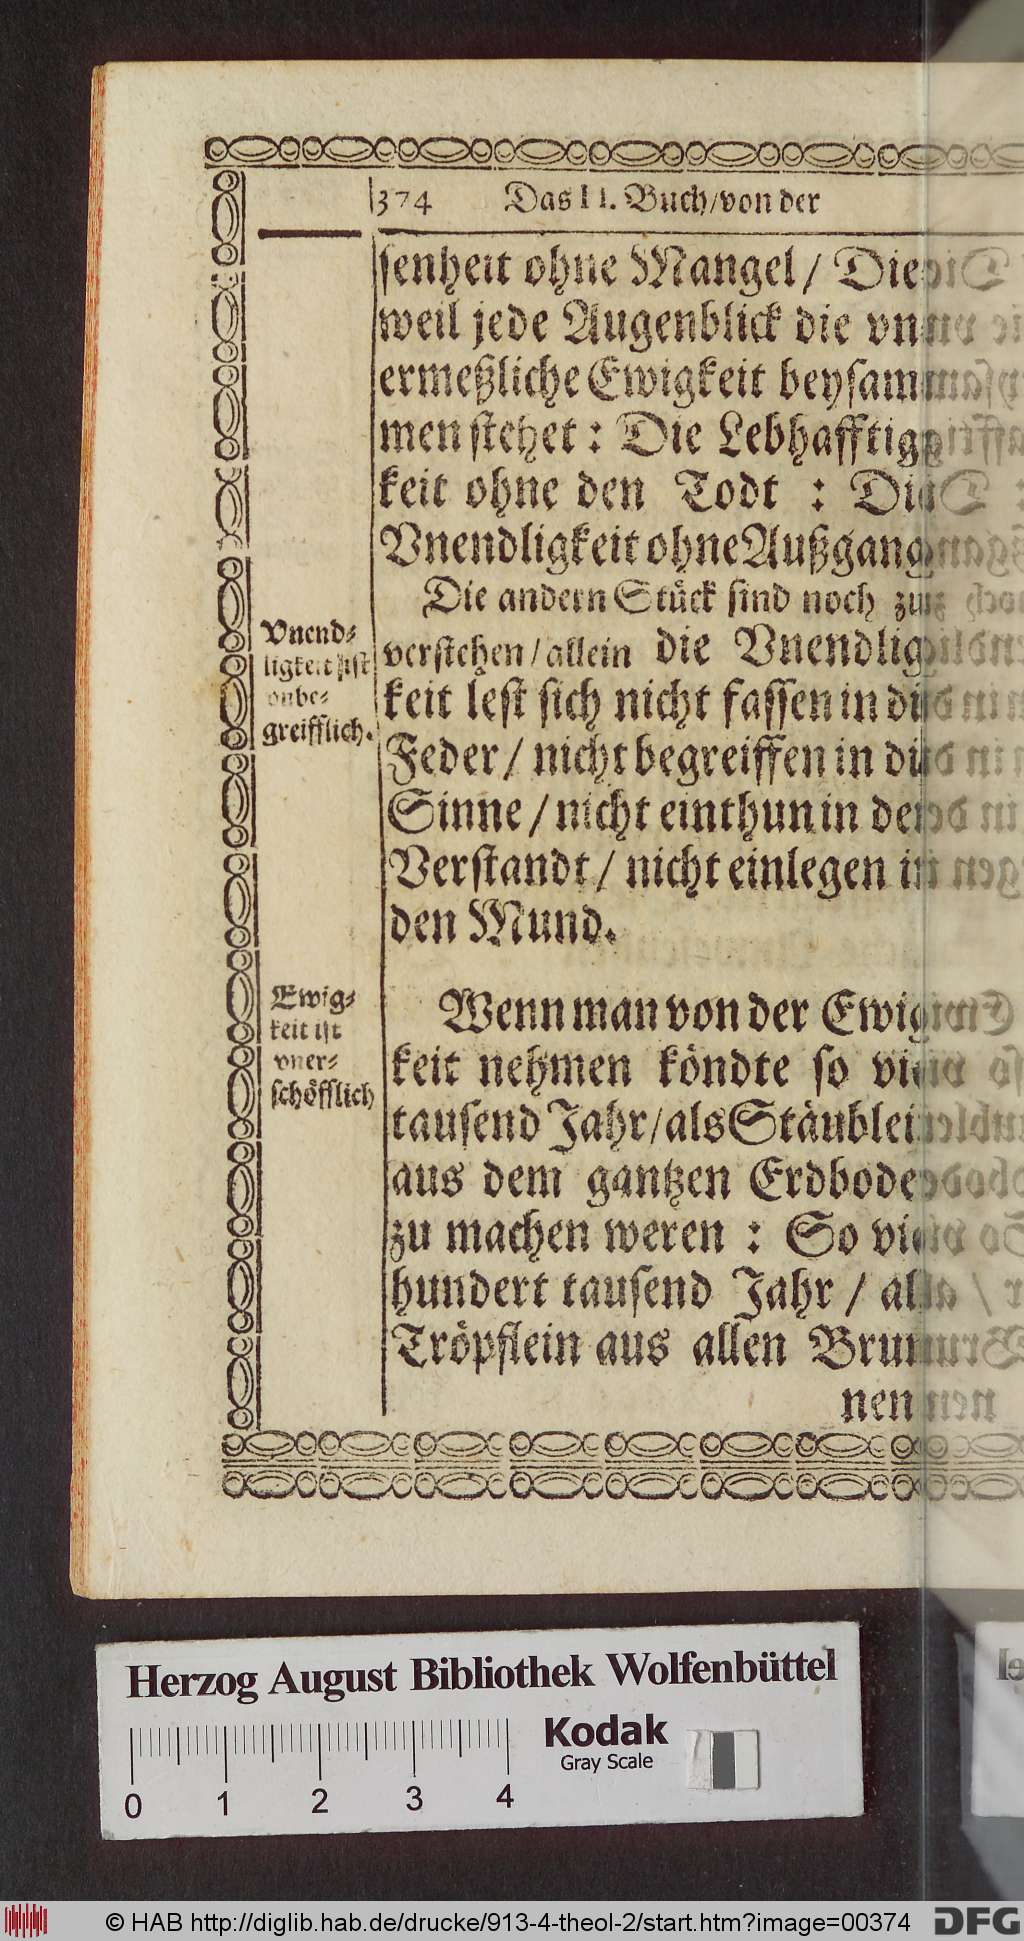 374 Das II. Buch/von der
ſenheit ohne Mangel/ Die
weil jede Augenblick die vn⸗
ermeßliche Ewigkeit beyſam⸗
men ſtehet: Die Lebhafftig⸗
keit ohne den Todt : Die
Vnendligkeit ohne Außgang
Die andern Stück ſind noch zu
verſtehen/allein die Vnendlig⸗
keit leſt ſich nicht faſſen in die
Feder/ nicht begreiffen in die
Sinne/nicht einthun in den
Verſtandt/ nicht einlegen in
den Mund.
Vnend⸗
ligkeit iſt
vnbe⸗
greifflich.
Wenn man von der Ewig⸗
keit nehmen köndte ſo viel
tauſend Jahr/als Stäublein
aus dem gantzen Erdboden
zu machen weren : So viel
hundert tauſend Jahr/ als
Tröpflein aus allen Brun⸗
nen
Ewig⸗
keit iſt
vner⸗
ſchöfflich
Herzog August Bibliothek Wolfenbüttel
Kodak
Gray Scale
0 1 2 3 4
© HAB http://diglib.hab.de/drucke/913-4-theol-2/start.htm?image=00374
DFG